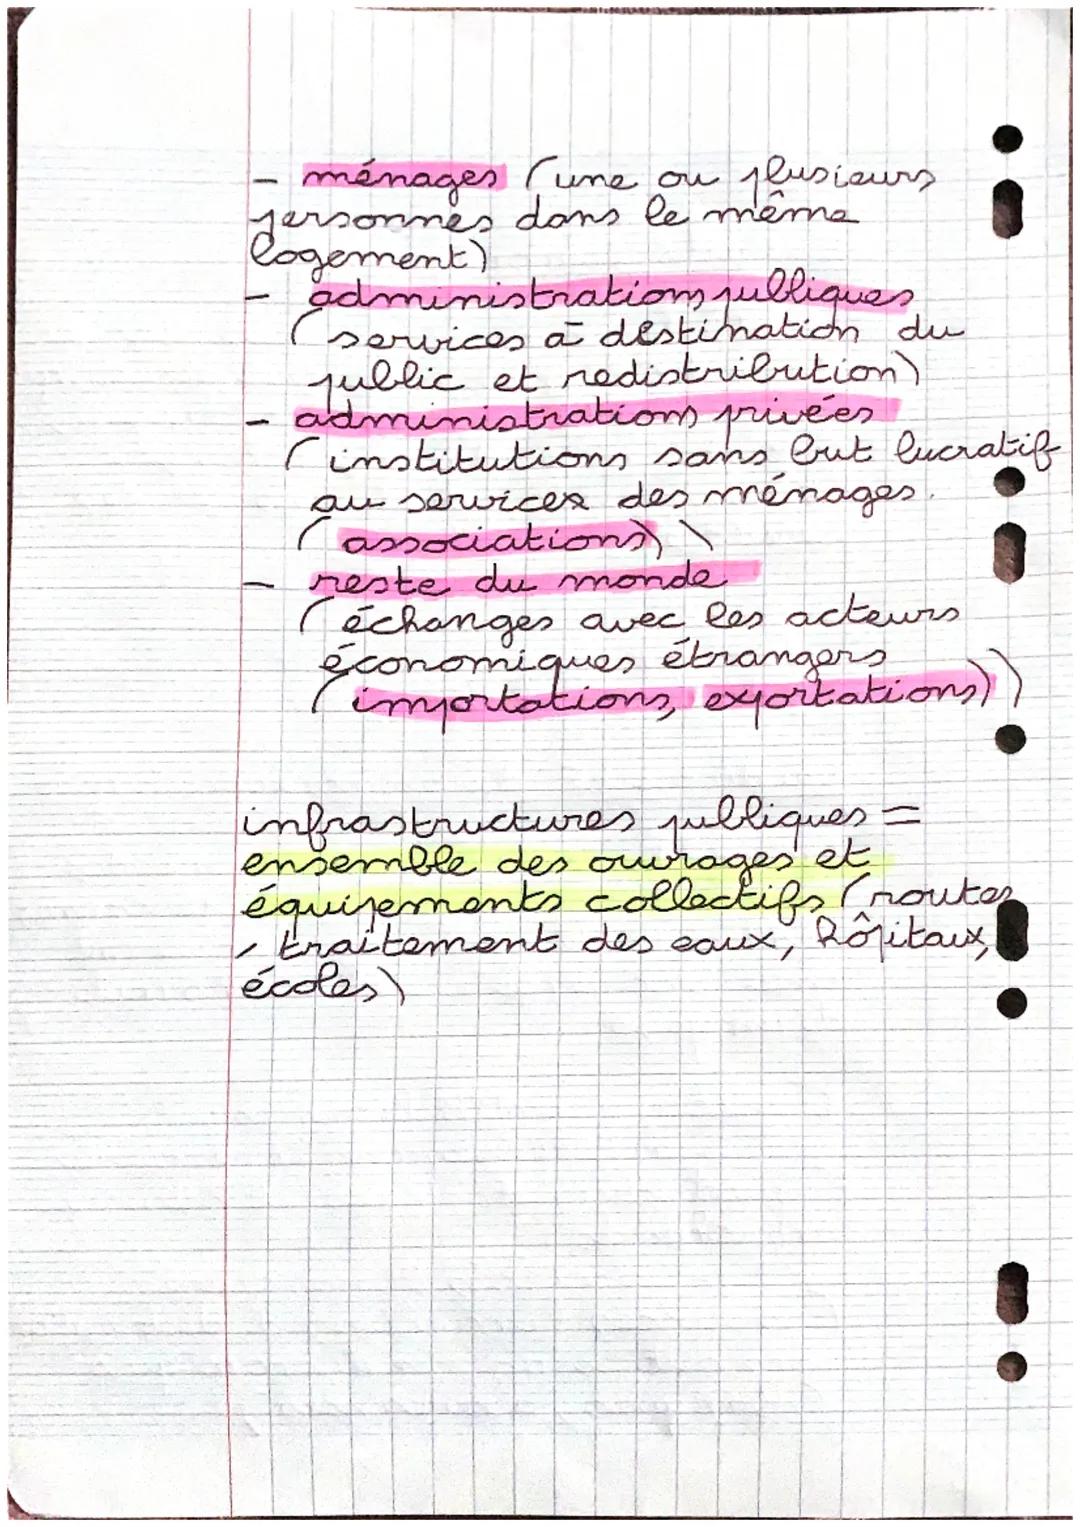 - ménages (une ou plusieurs
personnes dans le même
logement)
- administrations publiques
(services à destination du
public et redistribution)
- administrations privées
(institutions sans but lucratif
au services des ménages.
(associations))
- reste du monde
(échanges avec les acteurs
économiques étrangers
(importations, exportations))
infrastructures publiques =
ensemble des ouvrages et
équipements collectifs (routes
, traitement des eaux, hôpitaux,
écoles)